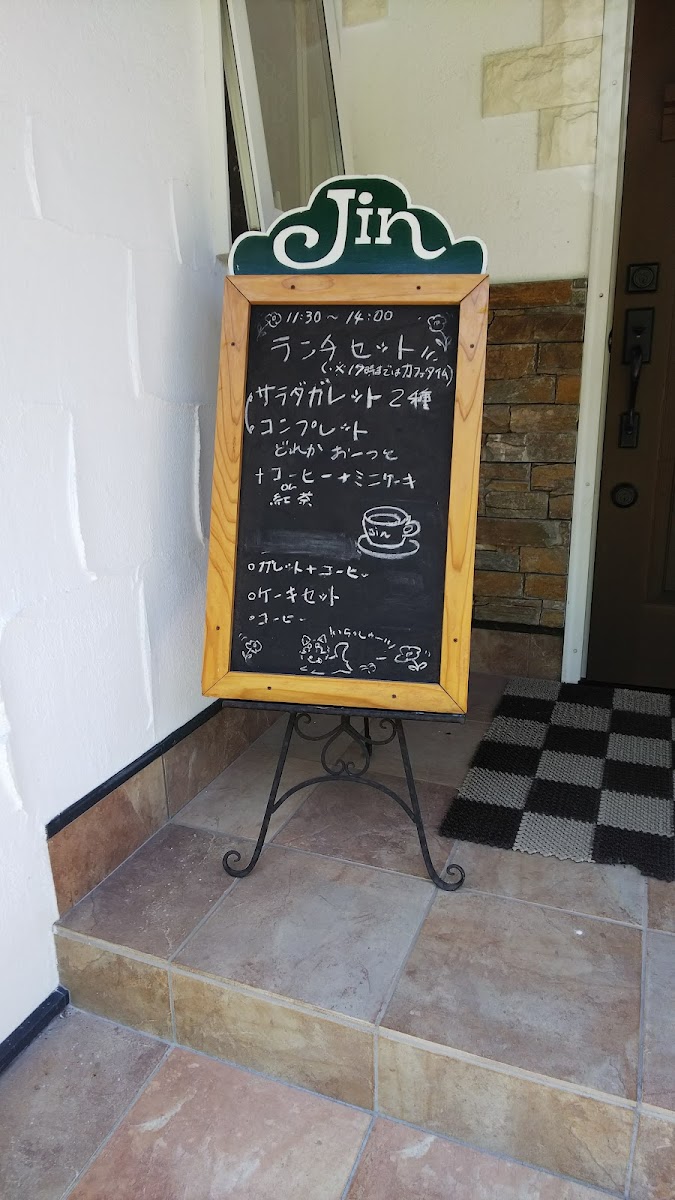 Jin
11:30～14:00
ランチセット
(※17時まではカフェタイム)
サラダガレット2種
コンプレット
どれか お一つと
+コーヒー+ミニケーキ
or
紅茶
Jin
ガレット+コーヒー
ケーキセット
コーヒー
いらっしゃーい